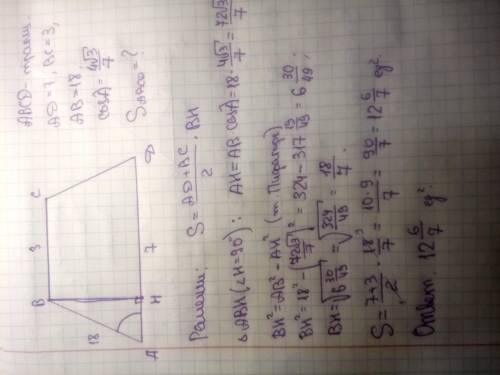 ABCD - трапец
AD=7, BC=3,
AB=18
cosA = 4√3/7
S_ABCD = ?
B 3 C
18
A H 7 D
Решение: S = (AD+BC)/2 · BH
△ABH (∠H=90°): AH=AB·cosA=18·4√3/7=72√3/7
BH²=AB²-AH² (т. Пифагора)
BH²=18²-(72√3/7)²=324-317 19/49=6 30/49
BH=√(6 30/49)=√(324/49)=18/7.
S=(7+3)/2·18/7=10·9/7=90/7=12 6/7 ед²
Ответ: 12 6/7 ед².